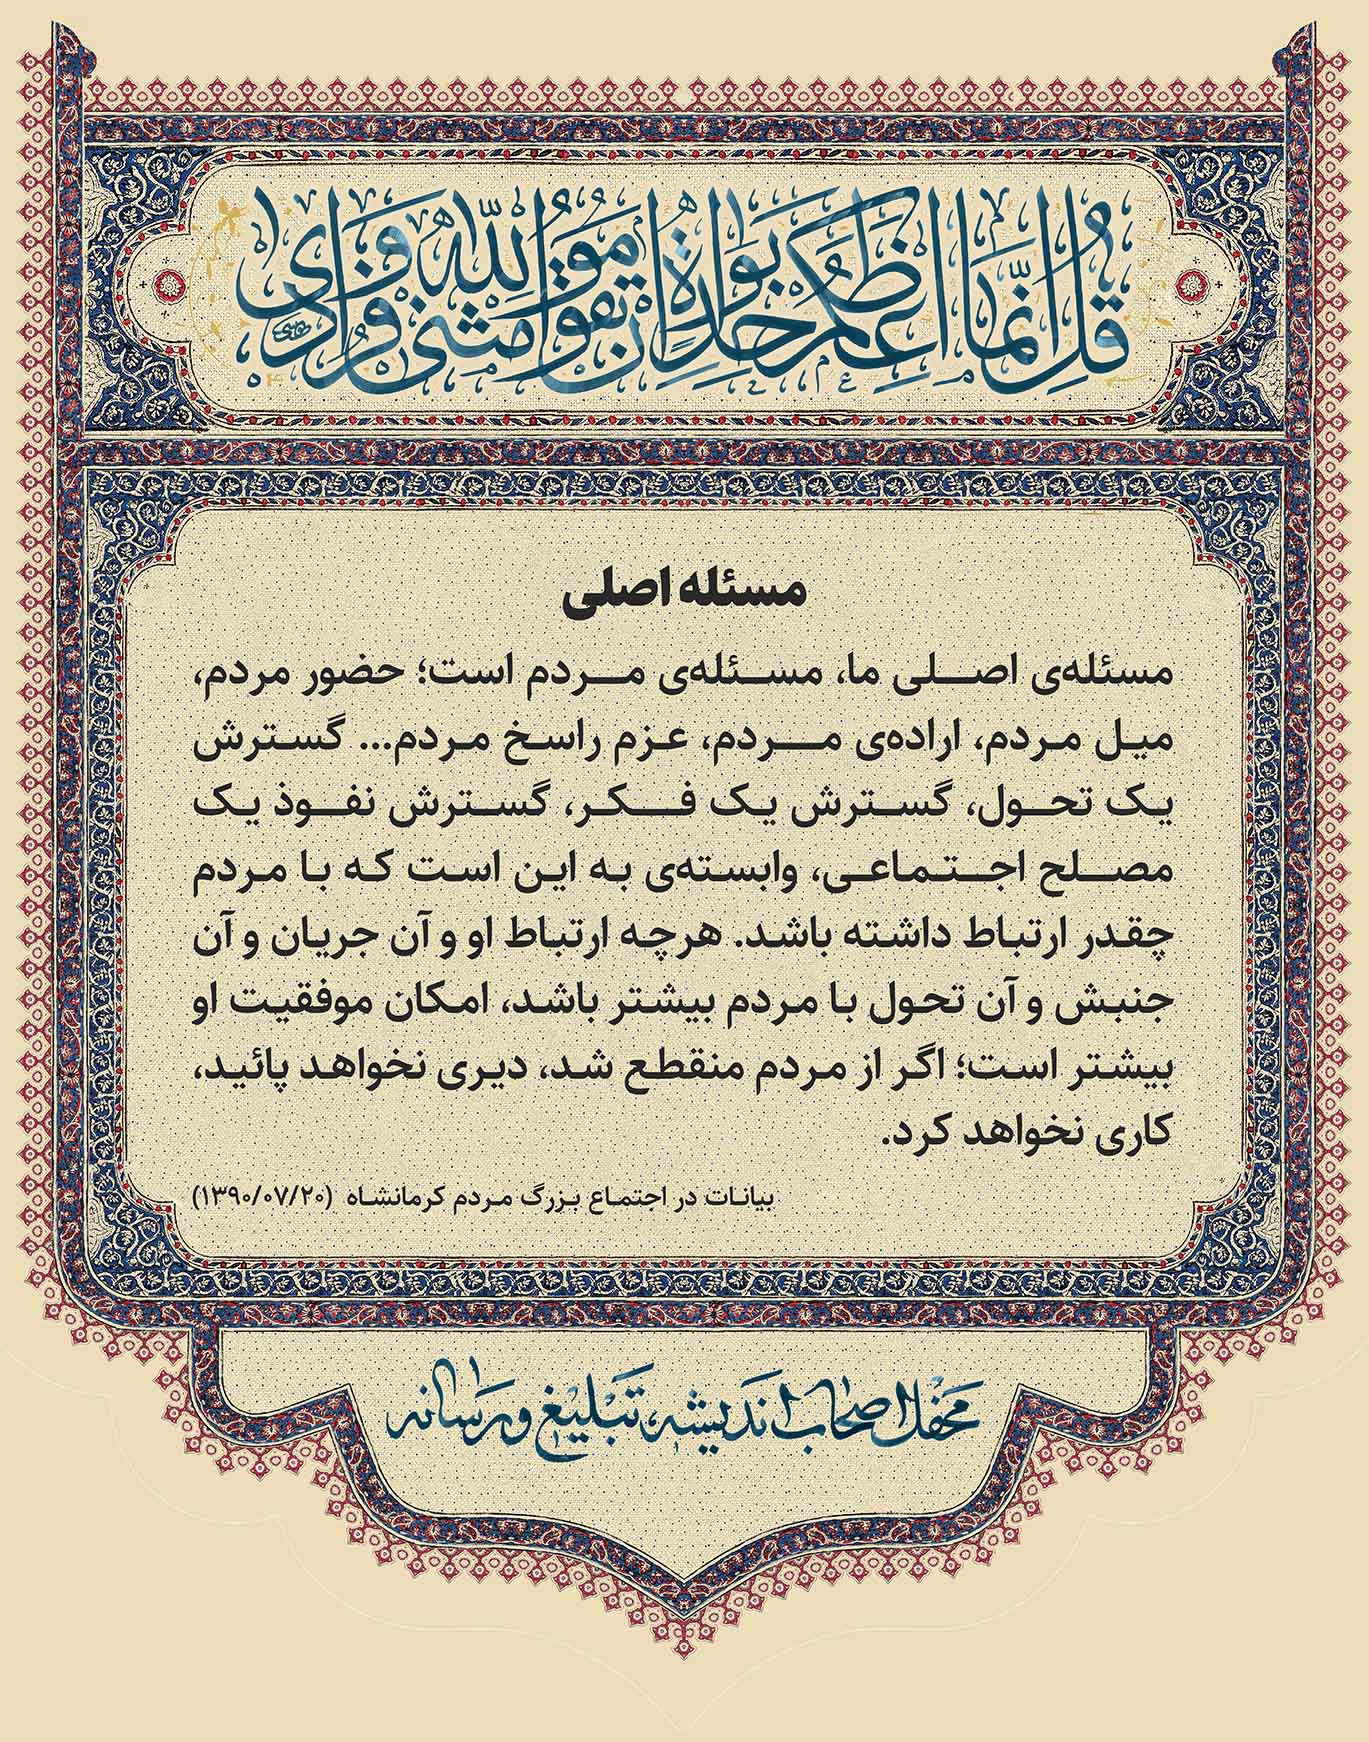 قل انما اعظکم بواحدة ان تقوموا لله مثنی و فرادی
مسئله اصلی
مسئله‌ی اصلی ما، مسئله‌ی مردم است؛ حضور مردم،
میل مردم، اراده‌ی مردم، عزم راسخ مردم... گسترش
یک تحول، گسترش یک فکر، گسترش نفوذ یک
مصلح اجتماعی، وابسته‌ی به این است که با مردم
چقدر ارتباط داشته باشد. هرچه ارتباط او و آن جریان و آن
جنبش و آن تحول با مردم بیشتر باشد، امکان موفقیت او
بیشتر است؛ اگر از مردم منقطع شد، دیری نخواهد پائید،
کاری نخواهد کرد.
بیانات در اجتماع بزرگ مردم کرمانشاه (۱۳۹۰/۰۷/۲۰)
محفل اصحاب اندیشه، تبلیغ و رسانه